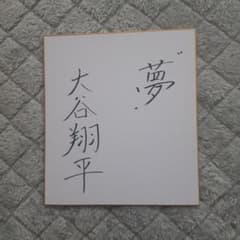 〝夢〟
大谷翔平